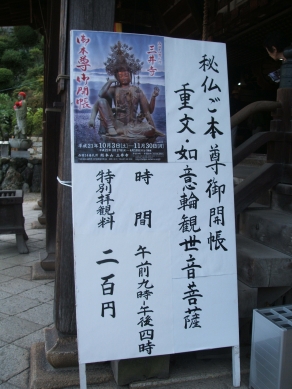 秘仏ご本尊御開帳
重文・如意輪観世音菩薩
時間 午前九時~午後四時
特別拝観料 二百円
三井寺
御本尊御開帳
平成21年10月3日(土)-11月30日(月)